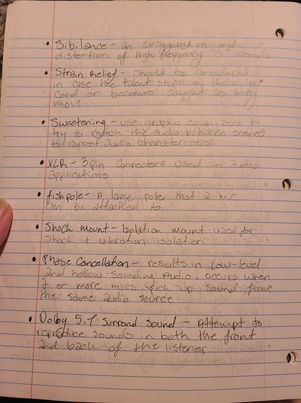 • Sibilance - an exaggeration and
distortion of High frequency "S" sounds
• Strain Relief - Should be considered
in case the talent steps on their mic
cord or becomes caught as they
move
• Sweetening - use graphic equalizers to
try to match the audio between scenes
to correct audio characteristics
• XLR - 3 pin connectors used in audio
applications
• fishpole - A large pole that a mic
can be attached to
• Shock mount - Isolation mount used for
Shock + vibration isolation
• Phase Cancellation - results in Low-level
and hollow-Sounding Audio, occurs when
2 or more mics pick up sound from
the same audio source
• Dolby 5.1 Surround Sound - Attempt to
reproduce sounds in both the front
and back of the listener